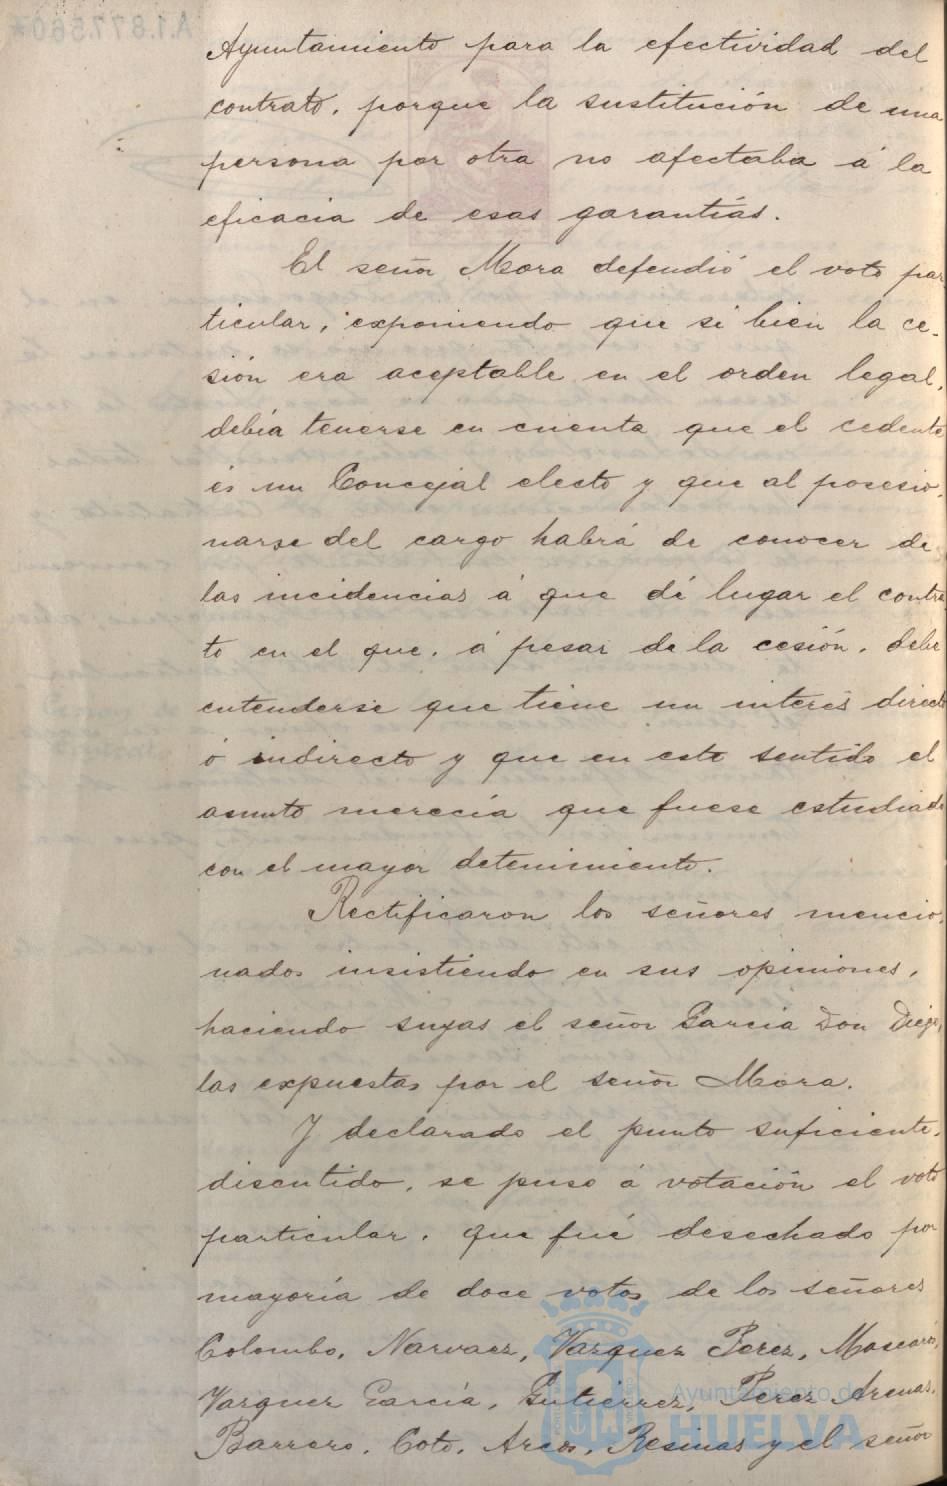 Ayuntamiento para la efectividad del
contrato, porque la sustitución de una
persona por otra no afectaba á la
eficacia de esas garantías.
El señor Mora defendió el voto par
ticular, exponiendo que si bien la ce-
sión era aceptable en el orden legal,
debía tenerse en cuenta que el cedente
és un Concejal electo y que al posesio-
narse del cargo habrá de conocer de
las incidencias á que dé lugar el contra
to en el que, á pesar de la cesión, debe
entenderse que tiene un interés directo
ó indirecto y que en este sentido el
asunto merecía que fuese estudiado
con el mayor detenimiento.
Rectificaron los señores mencio-
nados insistiendo en sus opiniones,
haciendo suyas el señor García Don Diego,
las expuestas por el señor Mora.
Y declarado el punto suficiente-
discutido, se puso á votación el voto
particular, que fué desechado por
mayoría de doce votos de los señores
Colombo, Narvaez, Vazquez Perez, Mascarós,
Vazquez García, Gutierrez, Perez Arenas,
Barrero, Coto, Arcos, Resinas y el señor
A.1.877.560*
Ayuntamiento de
HUELVA